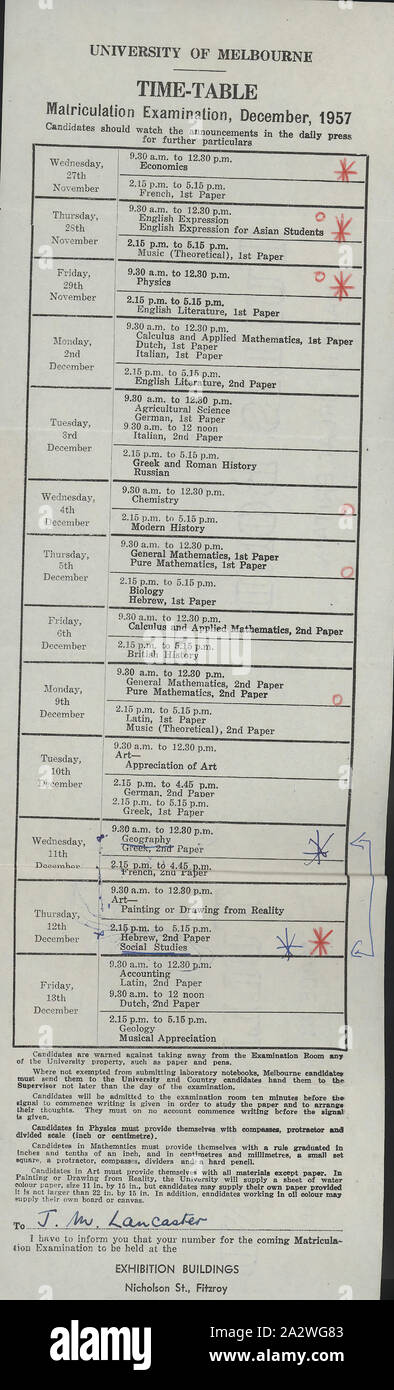 UNIVERSITY OF MELBOURNE
TIME-TABLE
Matriculation Examination, December, 1957
Candidates should watch the announcements in the daily press
for further particulars
Wednesday,
27th
November
9.30 a.m. to 12.30 p.m.
Economics
2.15 p.m. to 5.15 p.m.
French, 1st Paper
Thursday,
28th
November
9.30 a.m. to 12.30 p.m.
English Expression
English Expression for Asian Students
2.15 p.m. to 5.15 p.m.
Music (Theoretical), 1st Paper
Friday,
29th
November
9.30 a.m. to 12.30 p.m.
Physics
2.15 p.m. to 5.15 p.m.
English Literature, 1st Paper
Monday,
2nd
December
9.30 a.m. to 12.30 p.m.
Calculus and Applied Mathematics, 1st Paper
Dutch, 1st Paper
Italian, 1st Paper
2.15 p.m. to 5.15 p.m.
English Literature, 2nd Paper
Tuesday,
3rd
December
9.30 a.m. to 12.30 p.m.
Agricultural Science
German, 1st Paper
9.30 a.m. to 12 noon
Italian, 2nd Paper
2.15 p.m. to 5.15 p.m.
Greek and Roman History
Russian
Wednesday,
4th
December
9.30 a.m. to 12.30 p.m.
Chemistry
2.15 p.m. to 5.15 p.m.
Modern History
Thursday,
5th
December
9.30 a.m. to 12.30 p.m.
General Mathematics, 1st Paper
Pure Mathematics, 1st Paper
2.15 p.m. to 5.15 p.m.
Biology
Hebrew, 1st Paper
Friday,
6th
December
9.30 a.m. to 12.30 p.m.
Calculus and Applied Mathematics, 2nd Paper
2.15 p.m. to 5.15 p.m.
British History
Monday,
9th
December
9.30 a.m. to 12.30 p.m.
General Mathematics, 2nd Paper
Pure Mathematics, 2nd Paper
2.15 p.m. to 5.15 p.m.
Latin, 1st Paper
Music (Theoretical), 2nd Paper
Tuesday,
10th
December
9.30 a.m. to 12.30 p.m.
Art—
Appreciation of Art
2.15 p.m. to 4.45 p.m.
German, 2nd Paper
2.15 p.m. to 5.15 p.m.
Greek, 1st Paper
Wednesday,
11th
December
9.30 a.m. to 12.30 p.m.
Geography
Greek, 2nd Paper
2.15 p.m. to 4.45 p.m.
French, 2nd Paper
Thursday,
12th
December
9.30 a.m. to 12.30 p.m.
Art—
Painting or Drawing from Reality
2.15 p.m. to 5.15 p.m.
Hebrew, 2nd Paper
Social Studies
Friday,
13th
December
9.30 a.m. to 12.30 p.m.
Accounting
Latin, 2nd Paper
9.30 a.m. to 12 noon
Dutch, 2nd Paper
2.15 p.m. to 5.15 p.m.
Geology
Musical Appreciation
Candidates are warned against taking away from the Examination Room any
of the University property, such as paper and pens.
Where not exempted from submitting laboratory notebooks, Melbourne candidates
must send them to the University and Country candidates hand them to the
Supervisor not later than the day of the examination.
Candidates will be admitted to the examination room ten minutes before the
signal to commence writing is given in order to study the paper and to arrange
their thoughts. They must on no account commence writing before the signal
is given.
Candidates in Physics must provide themselves with compasses, protractor and
divided scale (inch or centimetre).
Candidates in Mathematics must provide themselves with a rule graduated in
inches and tenths of an inch, and in centimetres and millimetres, a small set
square, a protractor, compasses, dividers and a hard pencil.
Candidates in Art must provide themselves with all materials except paper. In
Painting or Drawing from Reality, the University will supply a sheet of water
colour paper, size 11 in. by 15 in., but candidates may supply their own paper provided
it is not larger than 22 in. by 15 in. In addition, candidates working in oil colour may
supply their own board or canvas.
To J. M. Lancaster
I have to inform you that your number for the coming Matricula-
tion Examination to be held at the
EXHIBITION BUILDINGS
Nicholson St., Fitzroy
alamy
alamy
Image ID: 2A2WG83
www.alamy.com